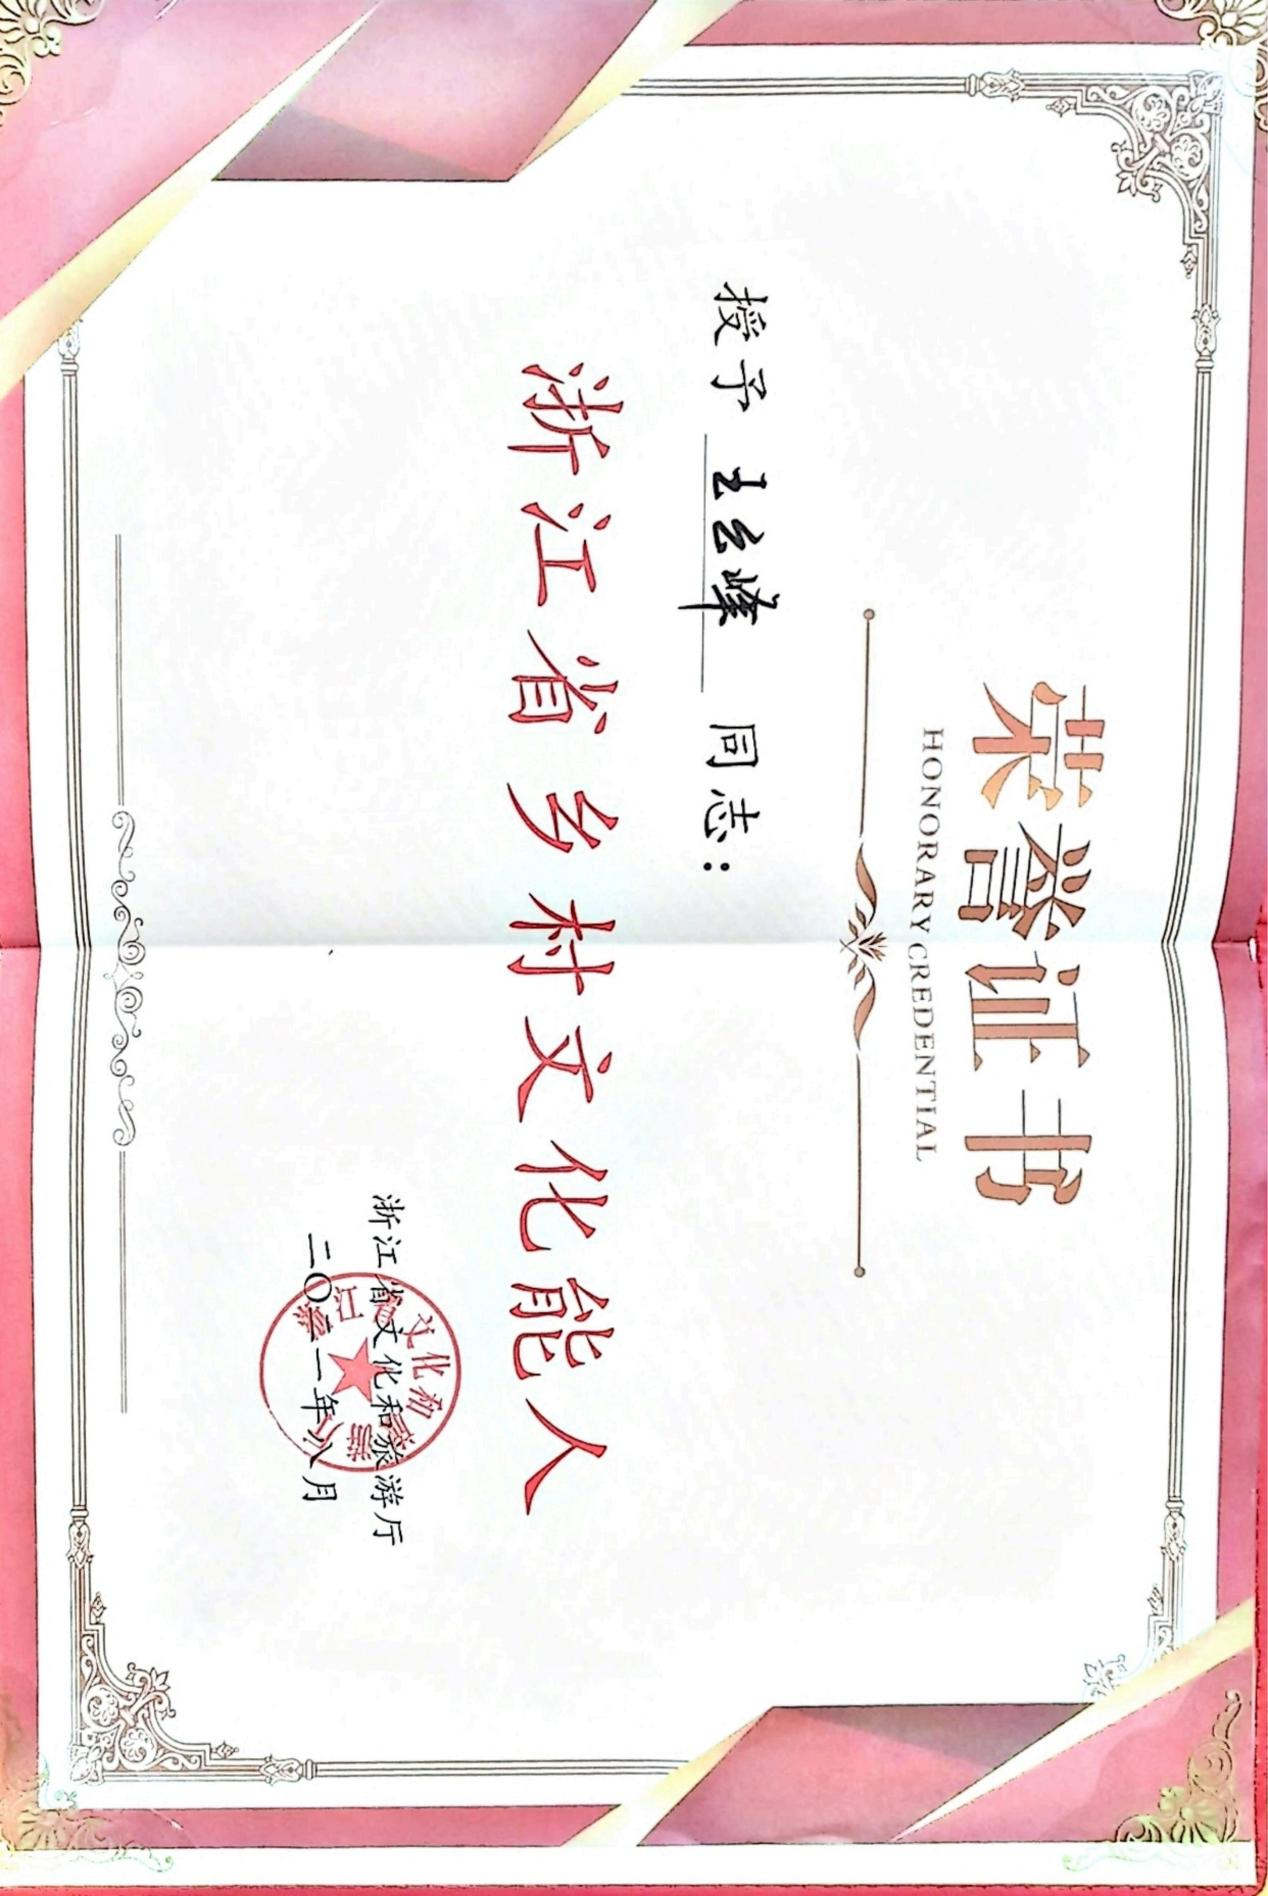 荣誉证书
HONORARY CREDENTIAL
授予 王云峰 同志:
浙江省乡村文化能人
浙江省文化和旅游厅
二〇二一年八月